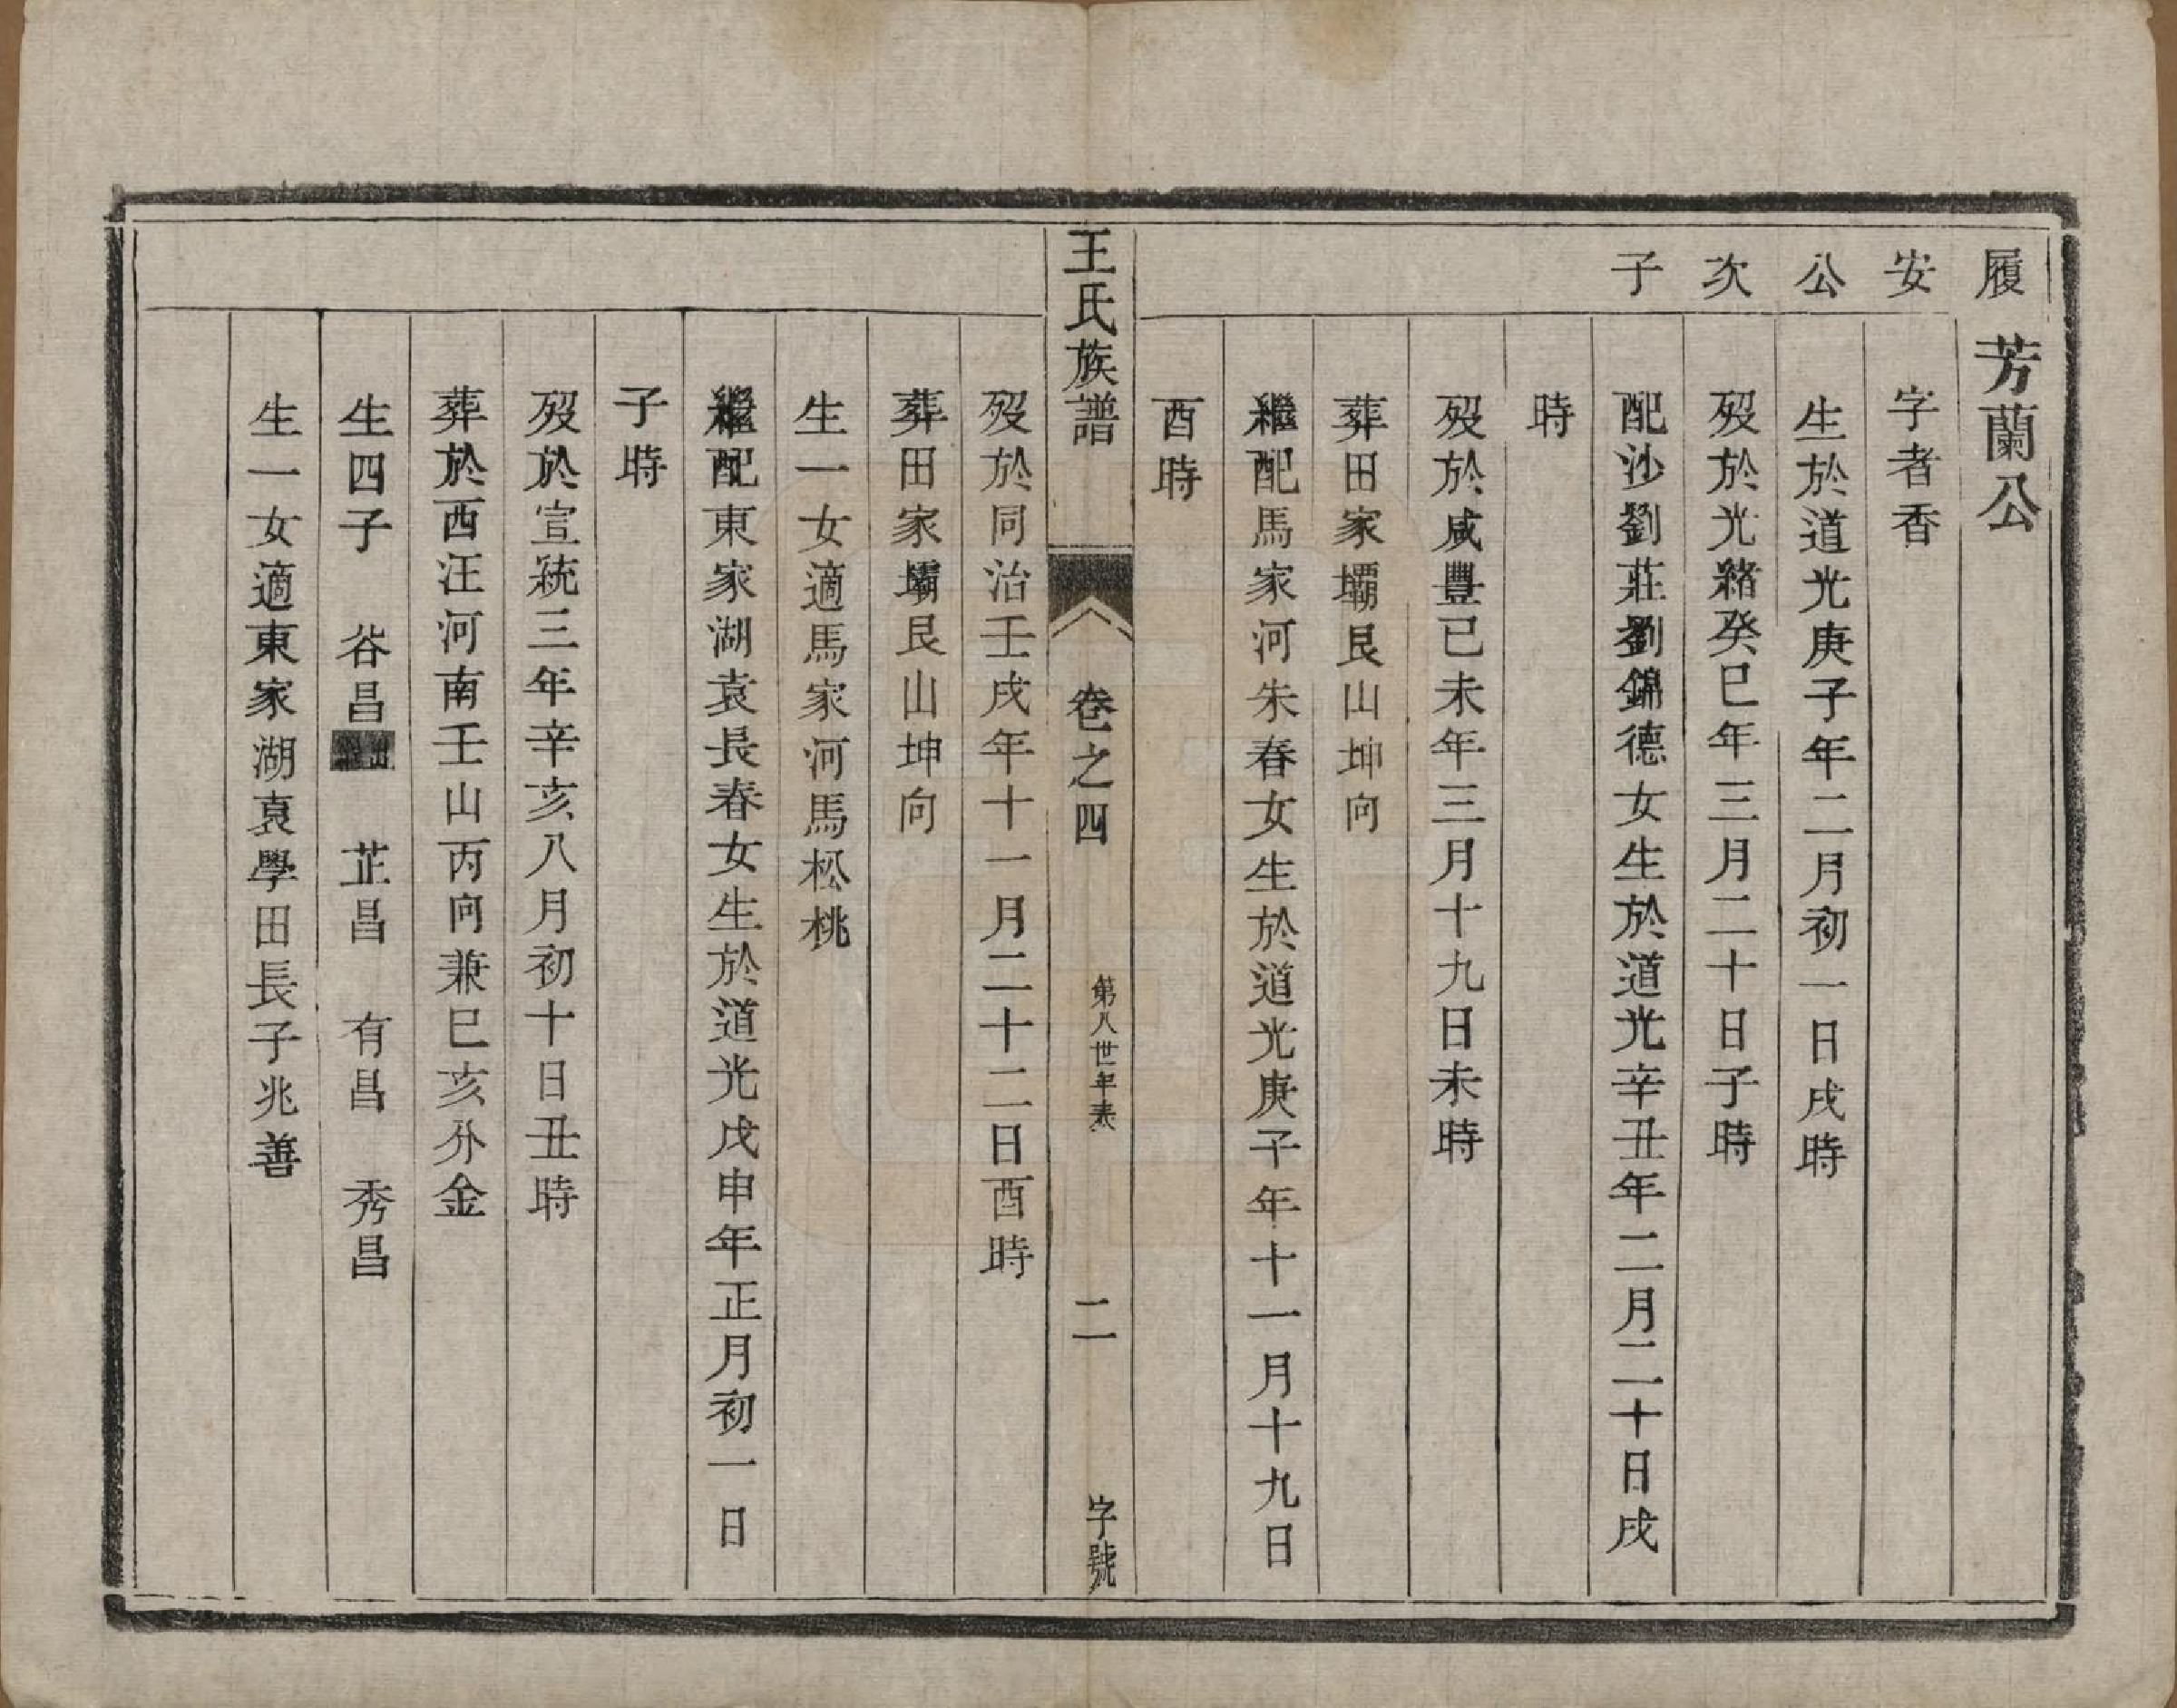 履安公次子
芳蘭公
字者香
生於道光庚子年二月初一日戌時
歿於光緒癸巳年三月二十日子時
配沙劉莊劉錦德女生於道光辛丑年二月二十日戌
時
歿於咸豐已未年三月十九日未時
葬田家壩艮山坤向
繼配馬家河朱春女生於道光庚子年十一月十九日
酉時
王氏族譜
卷之四
第八世年表
二
字號
歿於同治壬戌年十一月二十二日酉時
葬田家壩艮山坤向
生一女適馬家河馬松桃
繼配東家湖袁長春女生於道光戊申年正月初一日
子時
歿於宣統三年辛亥八月初十日丑時
葬於西汪河南壬山丙向兼巳亥分金
生四子 谷昌 芷昌 有昌 秀昌
生一女適東家湖袁學田長子兆善